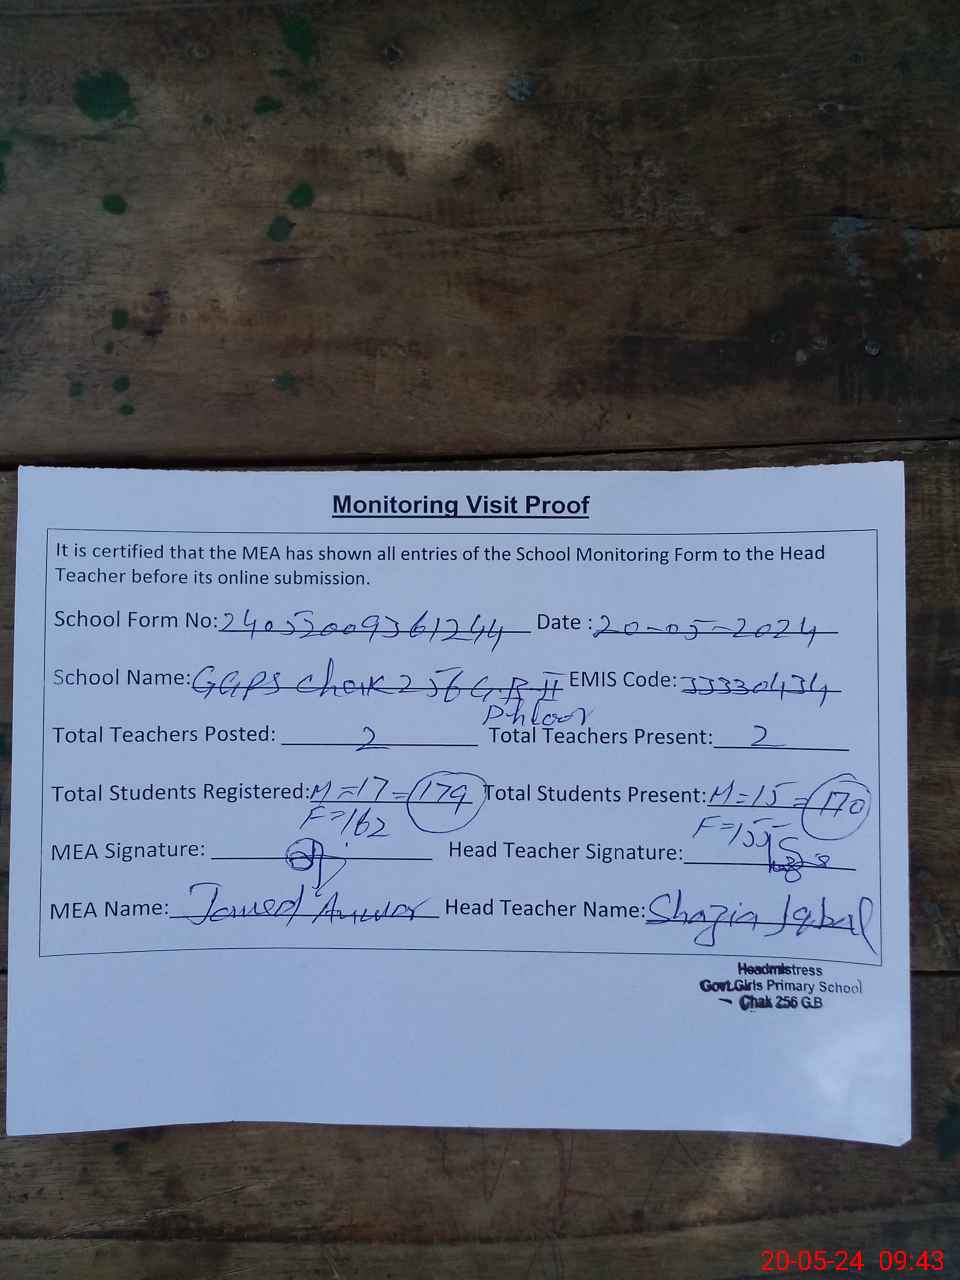 Monitoring Visit Proof
It is certified that the MEA has shown all entries of the School Monitoring Form to the Head
Teacher before its online submission.
School Form No: 24055009361244 Date : 20-05-2024
School Name: GGPS Chak 256 G.B II EMIS Code: 33330434
Phloor
Total Teachers Posted: 2 Total Teachers Present: 2
Total Students Registered: M=17 = 179 Total Students Present: M=15 = 170
F=162 F=155
MEA Signature: Head Teacher Signature:
MEA Name: Javed Anwar Head Teacher Name: Shazia Iqbal
Headmistress
Govt.Girls Primary School
Chak 256 G.B
20-05-24 09:43